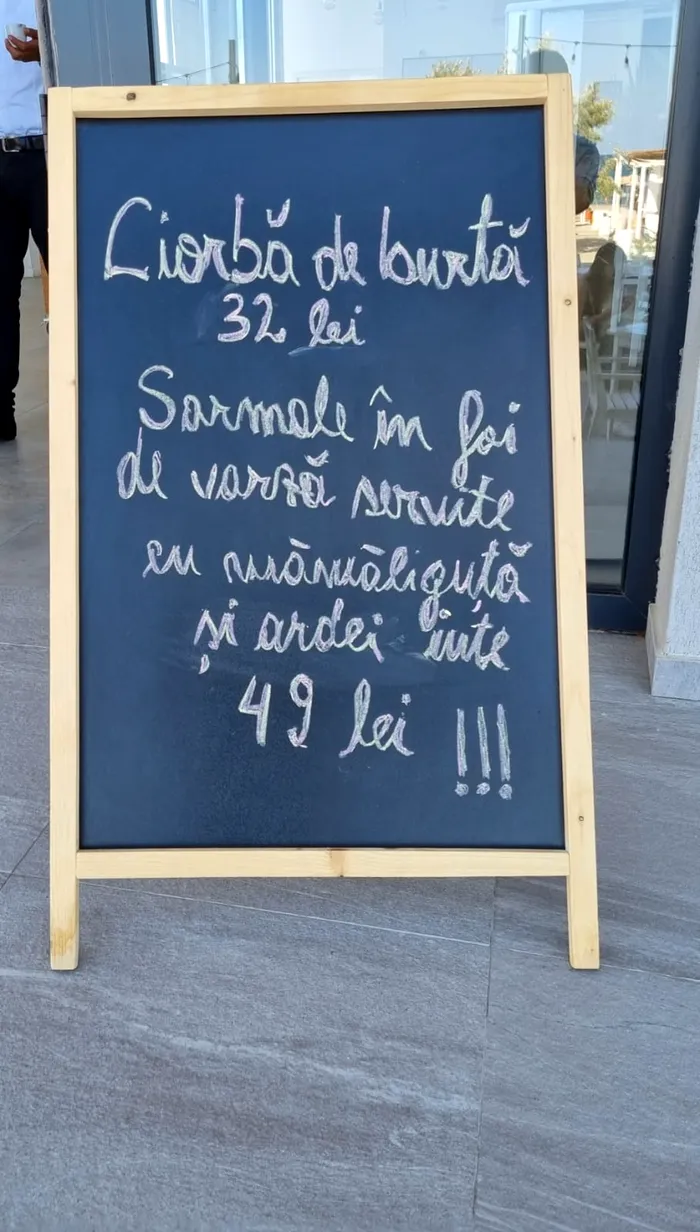 Ciorbă de burtă
32 lei
Sarmale în foi
de varză servite
cu mămăliguță
și ardei iute
49 lei !!!